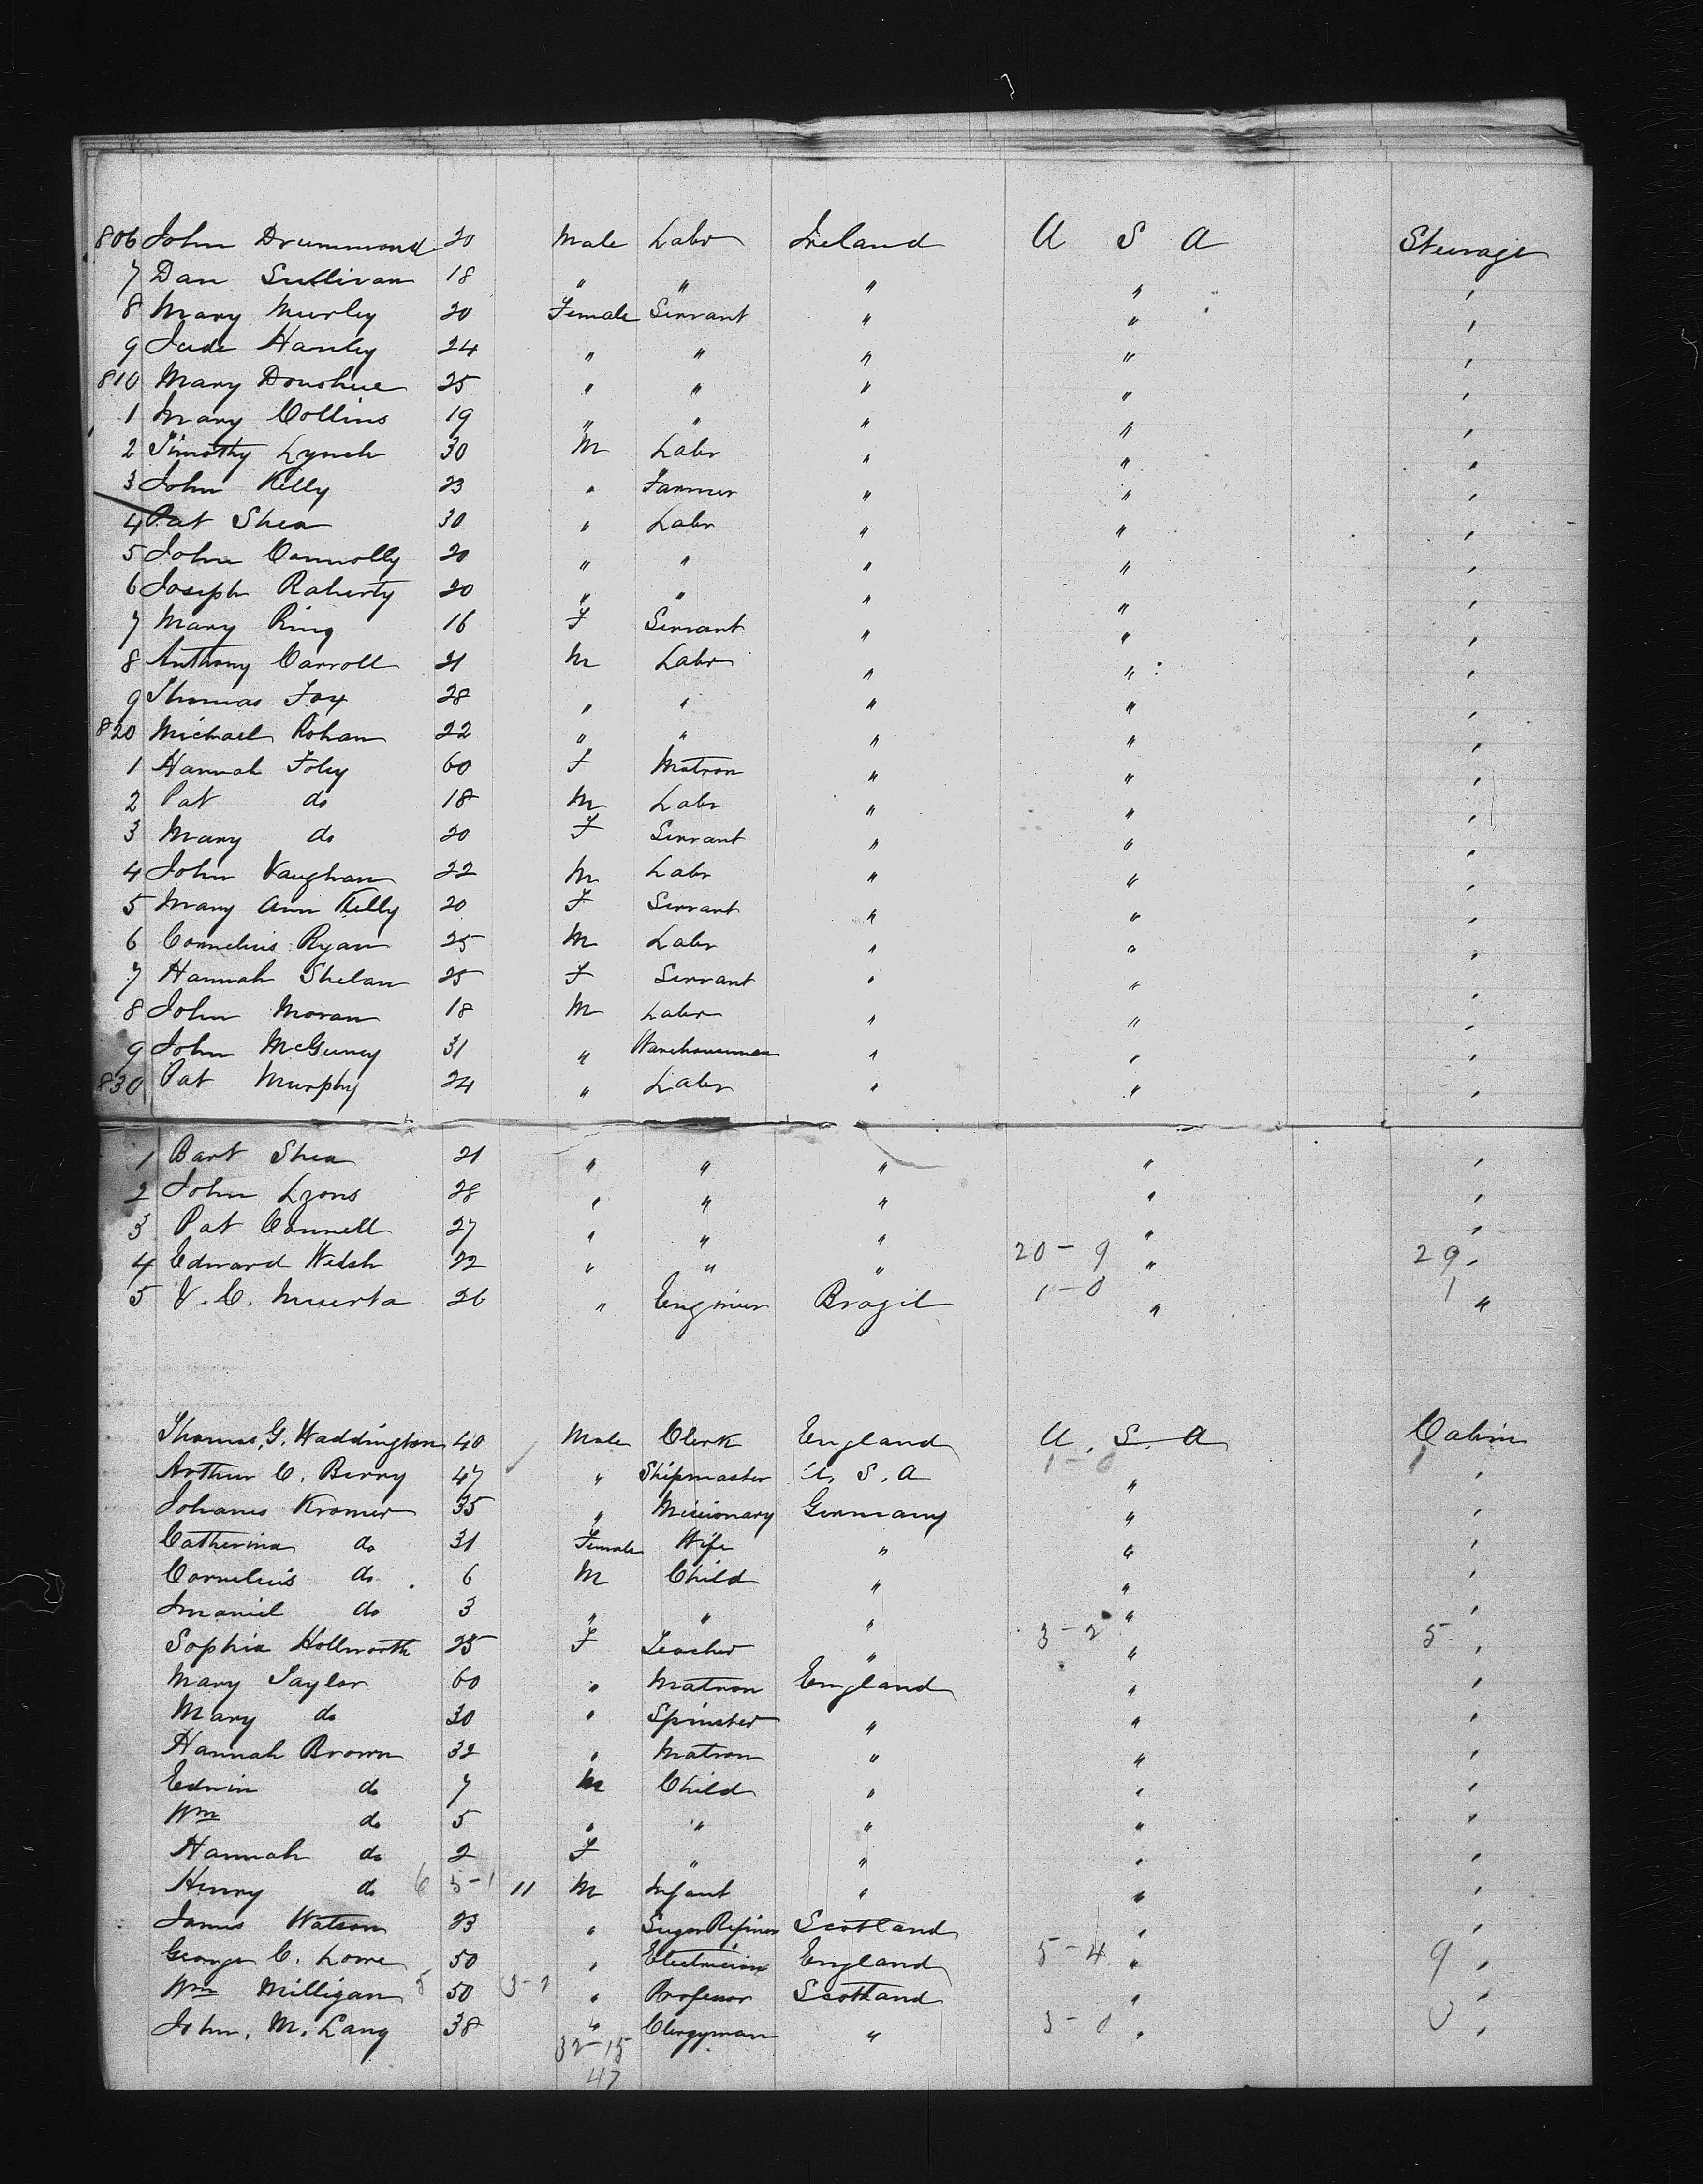 806 John Drummond 20 Male Labr Ireland U S A Steerage
7 Dan Sullivan 18 " " " " "
8 Mary Murley 20 Female Servant " " "
9 Jude Hanley 24 " " " " "
810 Mary Donohue 25 " " " " "
1 Mary Collins 19 " " " " "
2 Timothy Lynch 30 M Labr " " "
3 John Kelly 23 " Farmer " " "
4 Pat Shea 30 " Labr " " "
5 John Connolly 20 " " " " "
6 Joseph Raherty 20 " " " " "
7 Mary Ring 16 F Servant " " "
8 Anthony Carroll 21 M Labr " " "
9 Thomas Fox 28 " " " " "
820 Michael Rohan 22 " " " " "
1 Hannah Foley 60 F Matron " " "
2 Pat do 18 M Labr " " "
3 Mary do 20 F Servant " " "
4 John Vaughan 22 M Labr " " "
5 Mary Ann Kelly 20 F Servant " " "
6 Cornelius Ryan 25 M Labr " " "
7 Hannah Shelan 25 F Servant " " "
8 John Moran 18 M Labr " " "
9 John McGurvey 31 " Warehouseman " " "
830 Pat Murphy 24 " Labr " " "
1 Bart Shea 21 " " " " "
2 John Lyons 28 " " " " "
3 Pat Connell 27 " " " " "
4 Edward Welsh 22 " " " 20-9 " 29 "
5 V. C. Muerta 26 " Enginer Brazil 1-0 " 1 "
Thomas, G. Waddington 40 Male Clerk England U. S. A Cabin
Arthur C. Berry 47 " Shipmaster U. S. A 1-0 " 1 "
Johanes Kromer 35 " Missionary Germany " "
Catherina do 31 Female Wife " " "
Cornelius do 6 M Child " " "
Imaniel do 3 " " " " "
Sophia Hollworth 25 F Teacher " 3-2 " 5 "
Mary Taylor 60 " Matron England " "
Mary do 30 " Spinster " " "
Hannah Brown 32 " Matron " " "
Edwin do 7 M Child " " "
Wm do 5 " " " " "
Hannah do 2 F " " " "
Henry do 6 5-1 11 M Infant " " "
James Watson 23 " Sugar Refiner Scotland " "
George C. Lowe 50 " Electrician England 5-4 " 9 "
Wm Milligan 50 " Professor Scotland " "
John. M. Lang 38 " Clergyman " 3-0 " "
32-15
47